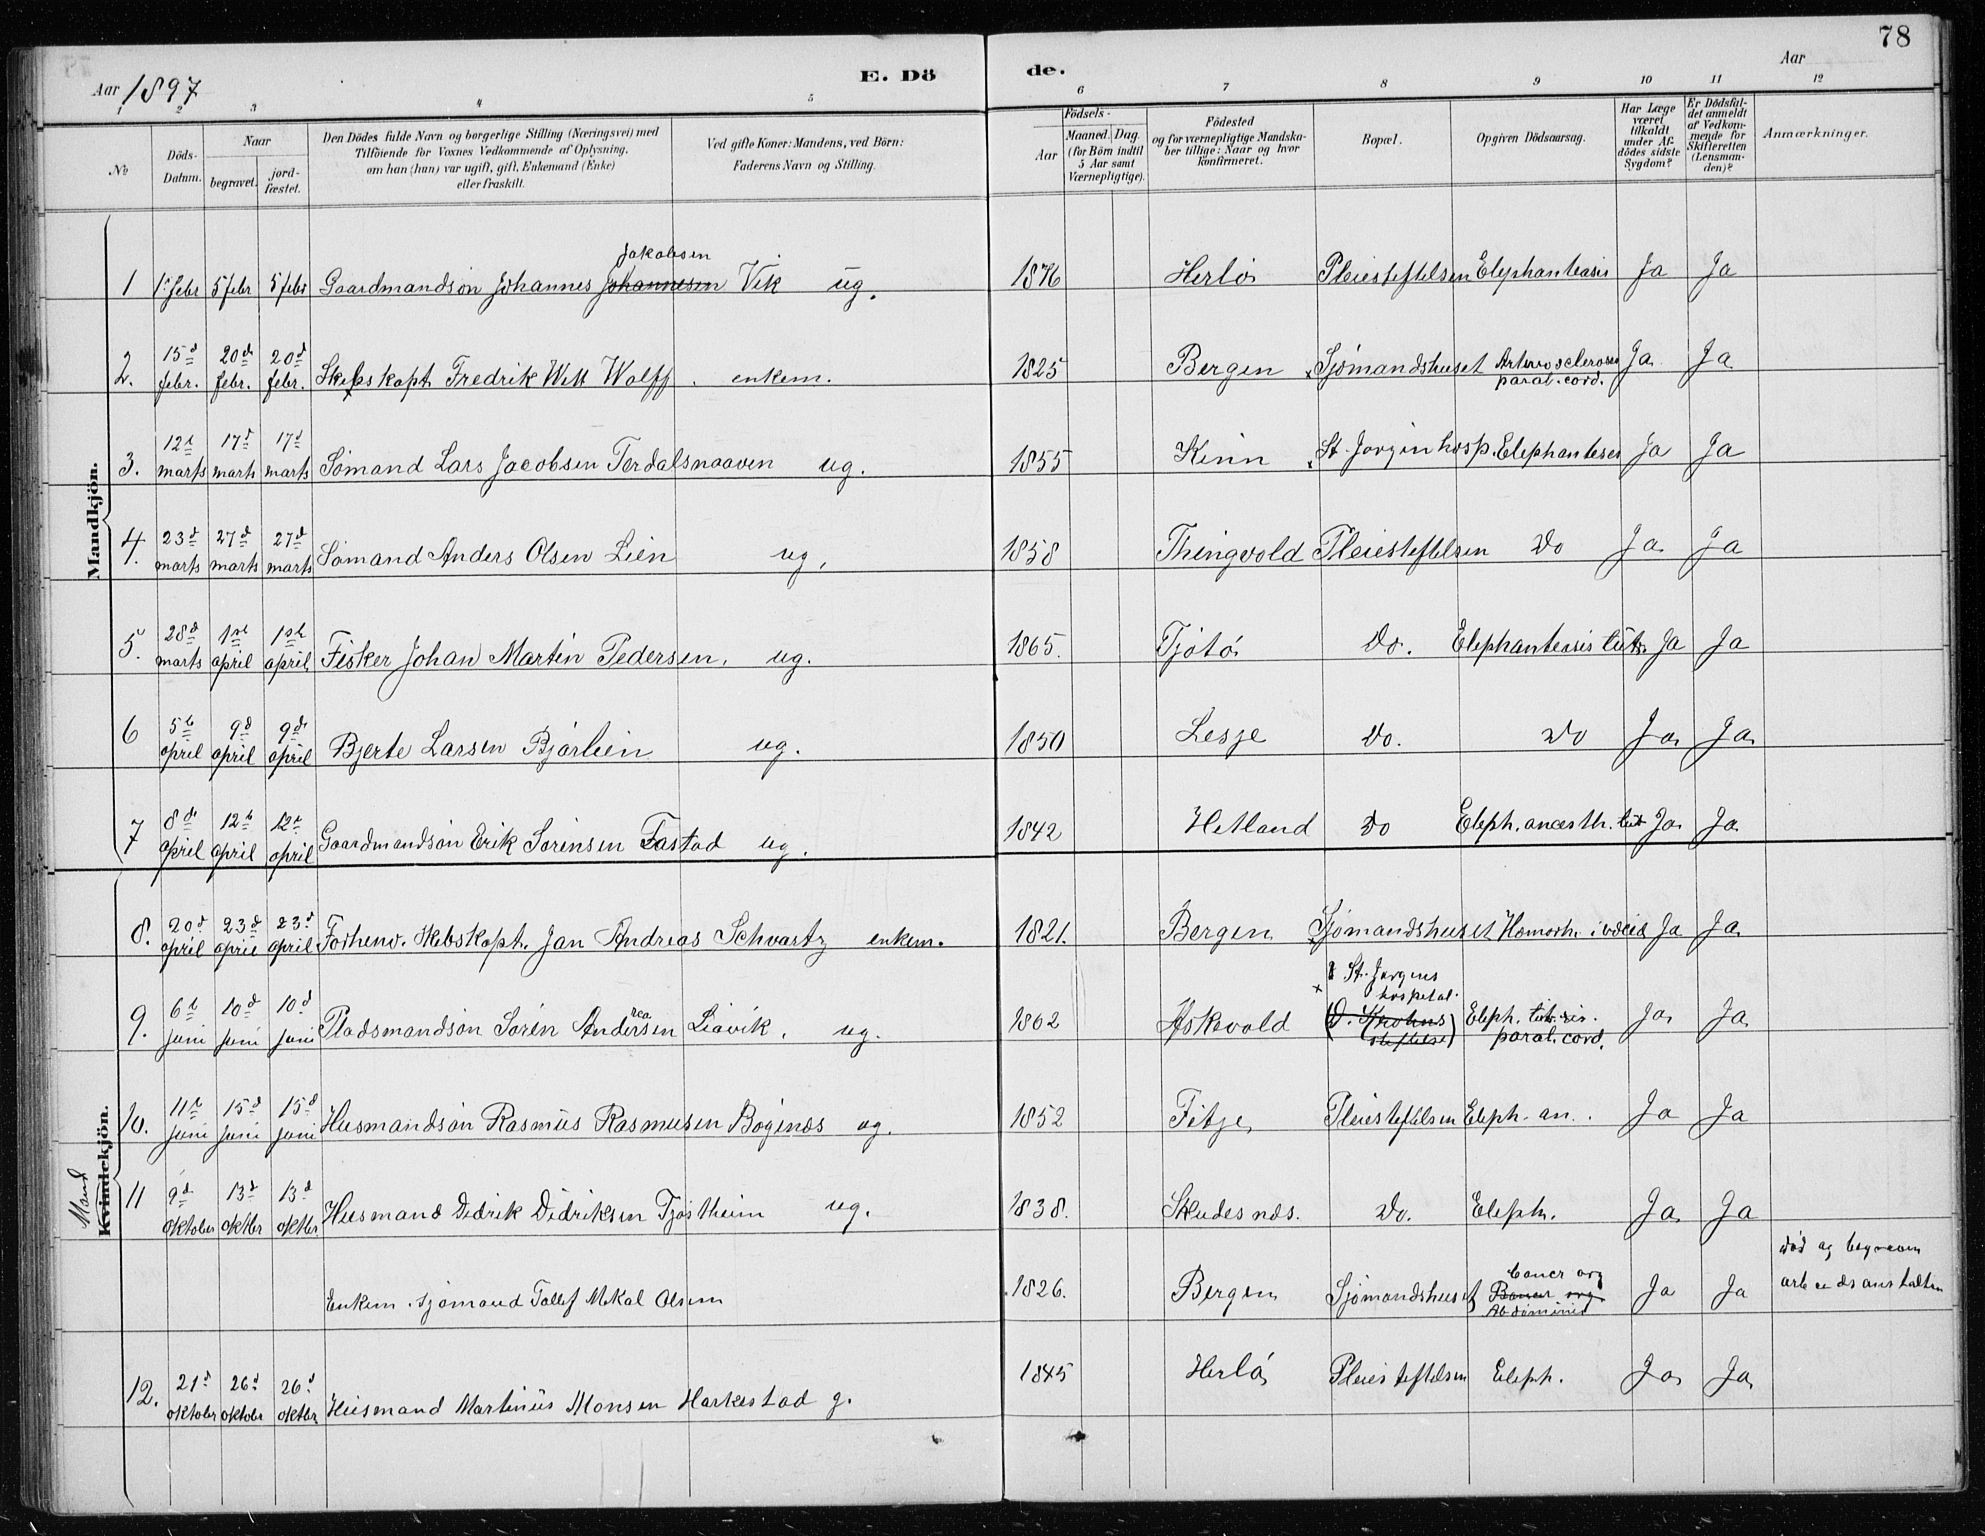 78
Aar 1897
E. Dö
de.
Aar
1 2 3 4 5 6 7 8 9 10 11 12
№
Döds-
Datum.
Naar
begravet.
jord-
fæstet.
Den Dödes fulde Navn og borgerlige Stilling (Næringsvei) med
Tilföiende for Voxnes Vedkommende af Oplysning,
om han (hun) var ugift, gift, Enkemand (Enke)
eller fraskilt.
Ved gifte Koner: Mandens, ved Börn:
Faderens Navn og Stilling.
Födsels-
Aar
Maaned. Dag.
(for Börn indtil
5 Aar samt
Værnepligtige).
Födested
og for værnepligtige Mandska-
ber tillige: Naar og hvor
konfirmeret.
Bopæl.
Opgiven Dödsaarsag.
Har Læge
været
tilkaldt
under Af-
dödes sidste
Sygdom?
Er Dödsfal-
det anmeldt
af Vedkom-
mende for
Skifteretten
(Lensman-
den)?
Anmærkninger.
Mandkjön.
Jakobsen
1 1. febr 5 febr 5 febr Gaardmandsön Johannes Johannesen Vik ug. 1876 Herlö Pleiestiftelsen Elephanteasis Ja Ja
2. 15d febr. 20de febr. 20d febr. Skibskapt. Fredrik Witt Wolff. enkem. 1825 Bergen Sjömandshuset Arterosclerose paral. cord. Ja Ja
3. 12t marts 17d marts 17d marts Sömand Lars Jacobsen Terdalsnaaven ug. 1855 Kinn St. Jorgin hosp. Elephanteses Ja Ja
4. 23d marts 27d marts 27d marts Sömand Anders Olsen Lien ug. 1858 Thingvold Pleiestiftelsen Do Ja Ja
5. 28d marts 1ste april 1ste april Fisker Johan Martin Pedersen. ug. 1865. Tjötö Do. Elephanteasis tub. Ja Ja
6 5t april 9d april 9de april Bjerte Larsen Bjorlien ug. 1850 Lesje Do. Do Ja Ja
7 8de april 12t april 12t april Gaardmandsön Erik Sörensen Fastad ug. 1842 Hetland Do Eleph. anæsth. tub Ja Ja
8. 20d april 23d april 23d april Forhenv. skibskapt. Jan Andreas Schvartz enkem. 1821. Bergen Sjömandshuset Ja Ja
x St. Jorgens
hospetal.
9. 6t juni 10d juni 10d juni Pladsmandsön Sorin Andersen Liavik. ug. 1862 Askevold Eleph. paral. cord. Ja Ja
Mand
Kvindekjön.
10. 11t juni 15d juni 15d juni Husmandsön Rasmus Rasmusen Böginæs ug. 1852 Fitje Pleiestiftelsen Eleph. an. Ja Ja
11 9d oktober 13d oktbr 13d oktbr Husmand Didrik Didriksen Tjøstheim ug. 1838. Skudesnæs. Do. Eleph. Ja Ja
Enkem. sjömand Tollef Mekal Olsen 1826. Bergen Sjömandshuset Cancer org Abdominis Ja Ja
död og begraven
arbeedsanstalten
12. 21d oktobr 26d oktobr 26d oktbr Husmand Martinus Monsen Harkestad g. 1845 Herlö Pleiestiftelsen Eleph. Ja Ja